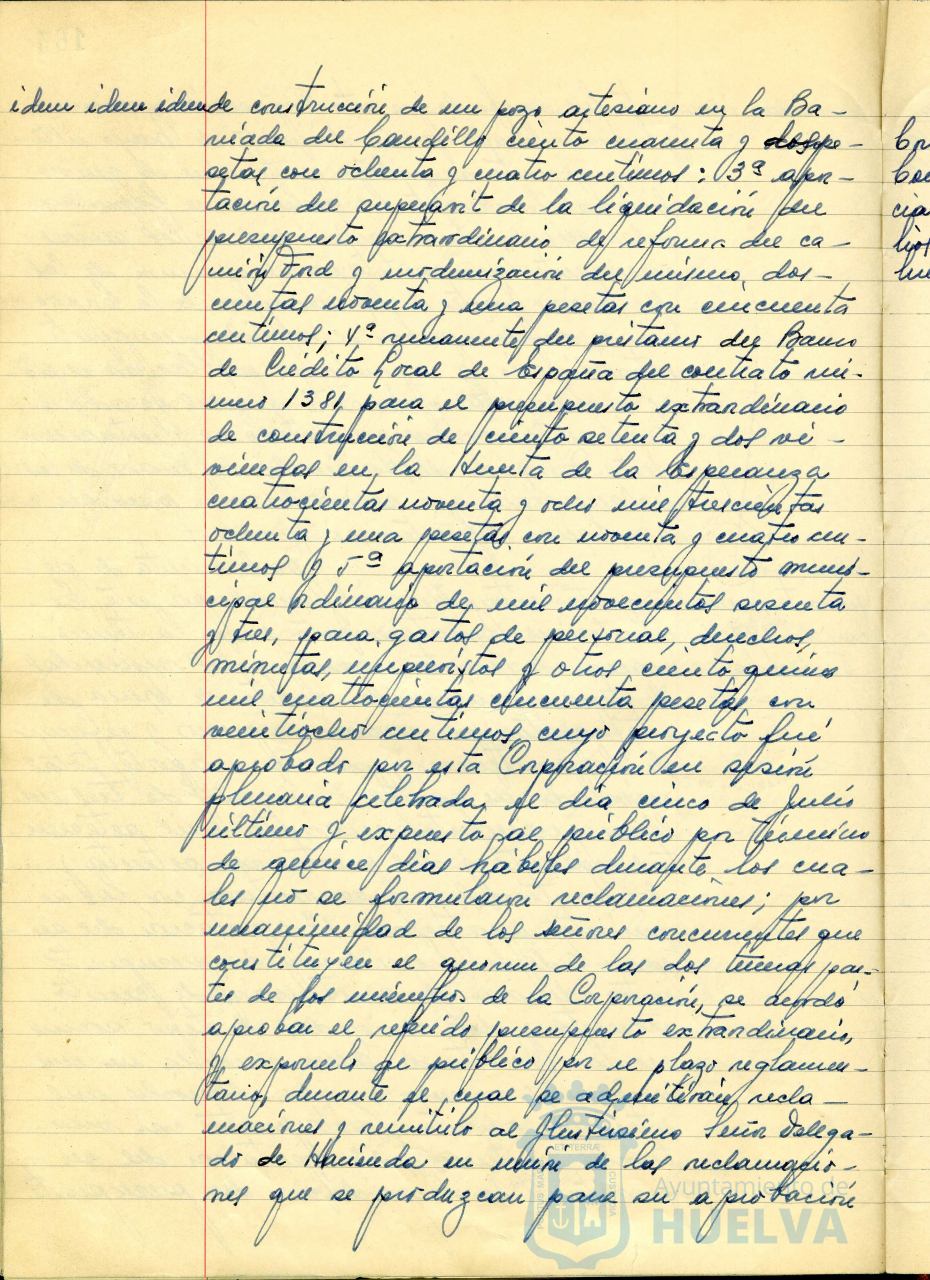 idem idem idem de construcción de un pozo artesiano en la Ba-
rriada del Caudillo ciento cuarenta y dos pe-
setas con ochenta y cuatro centimos: 3ª apor-
tación del superavit de la liquidación del
presupuesto extraordinario de reforma del ca-
mión Ford y modernización del mismo, dos-
cientas noventa y una pesetas con cincuenta
centimos; 4ª remanente del préstamo del Banco
de Crédito Local de España del contrato nú-
mero 1381, para el presupuesto extraordinario
de construcción de ciento setenta y dos vi-
viendas en la Huerta de la Esperanza
cuatrocientas noventa y ocho mil trescientas
ochenta y una pesetas con noventa y cuatro cen-
timos y 5ª aportación del presupuesto muni-
cipal ordinario de mil novecientos sesenta
y tres, para gastos de personal, derechos,
minutas, imprevistos y otros ciento quince
mil cuatrocientas cincuenta pesetas con
veintiocho centimos, cuyo proyecto fué
aprobado por esta Corporación en sesión
plenaria celebrada el día cinco de Julio
último y expuesto al público por término
de quince días hábiles durante los cua-
les no se formularon reclamaciones; por
unanimidad de los señores concurrentes que
constituyen el quorum de las dos terceras par-
tes de los miembros de la Corporación, se acordó
aprobar el referido presupuesto extraordinario,
y exponerlo al público por el plazo reglamen-
tario, durante el cual se admitirán recla-
maciones y remitirlo al Ilustrísimo Señor Delega-
do de Hacienda en unión de las reclamacio-
nes que se produzcan para su aprobación
Ayuntamiento de
HUELVA